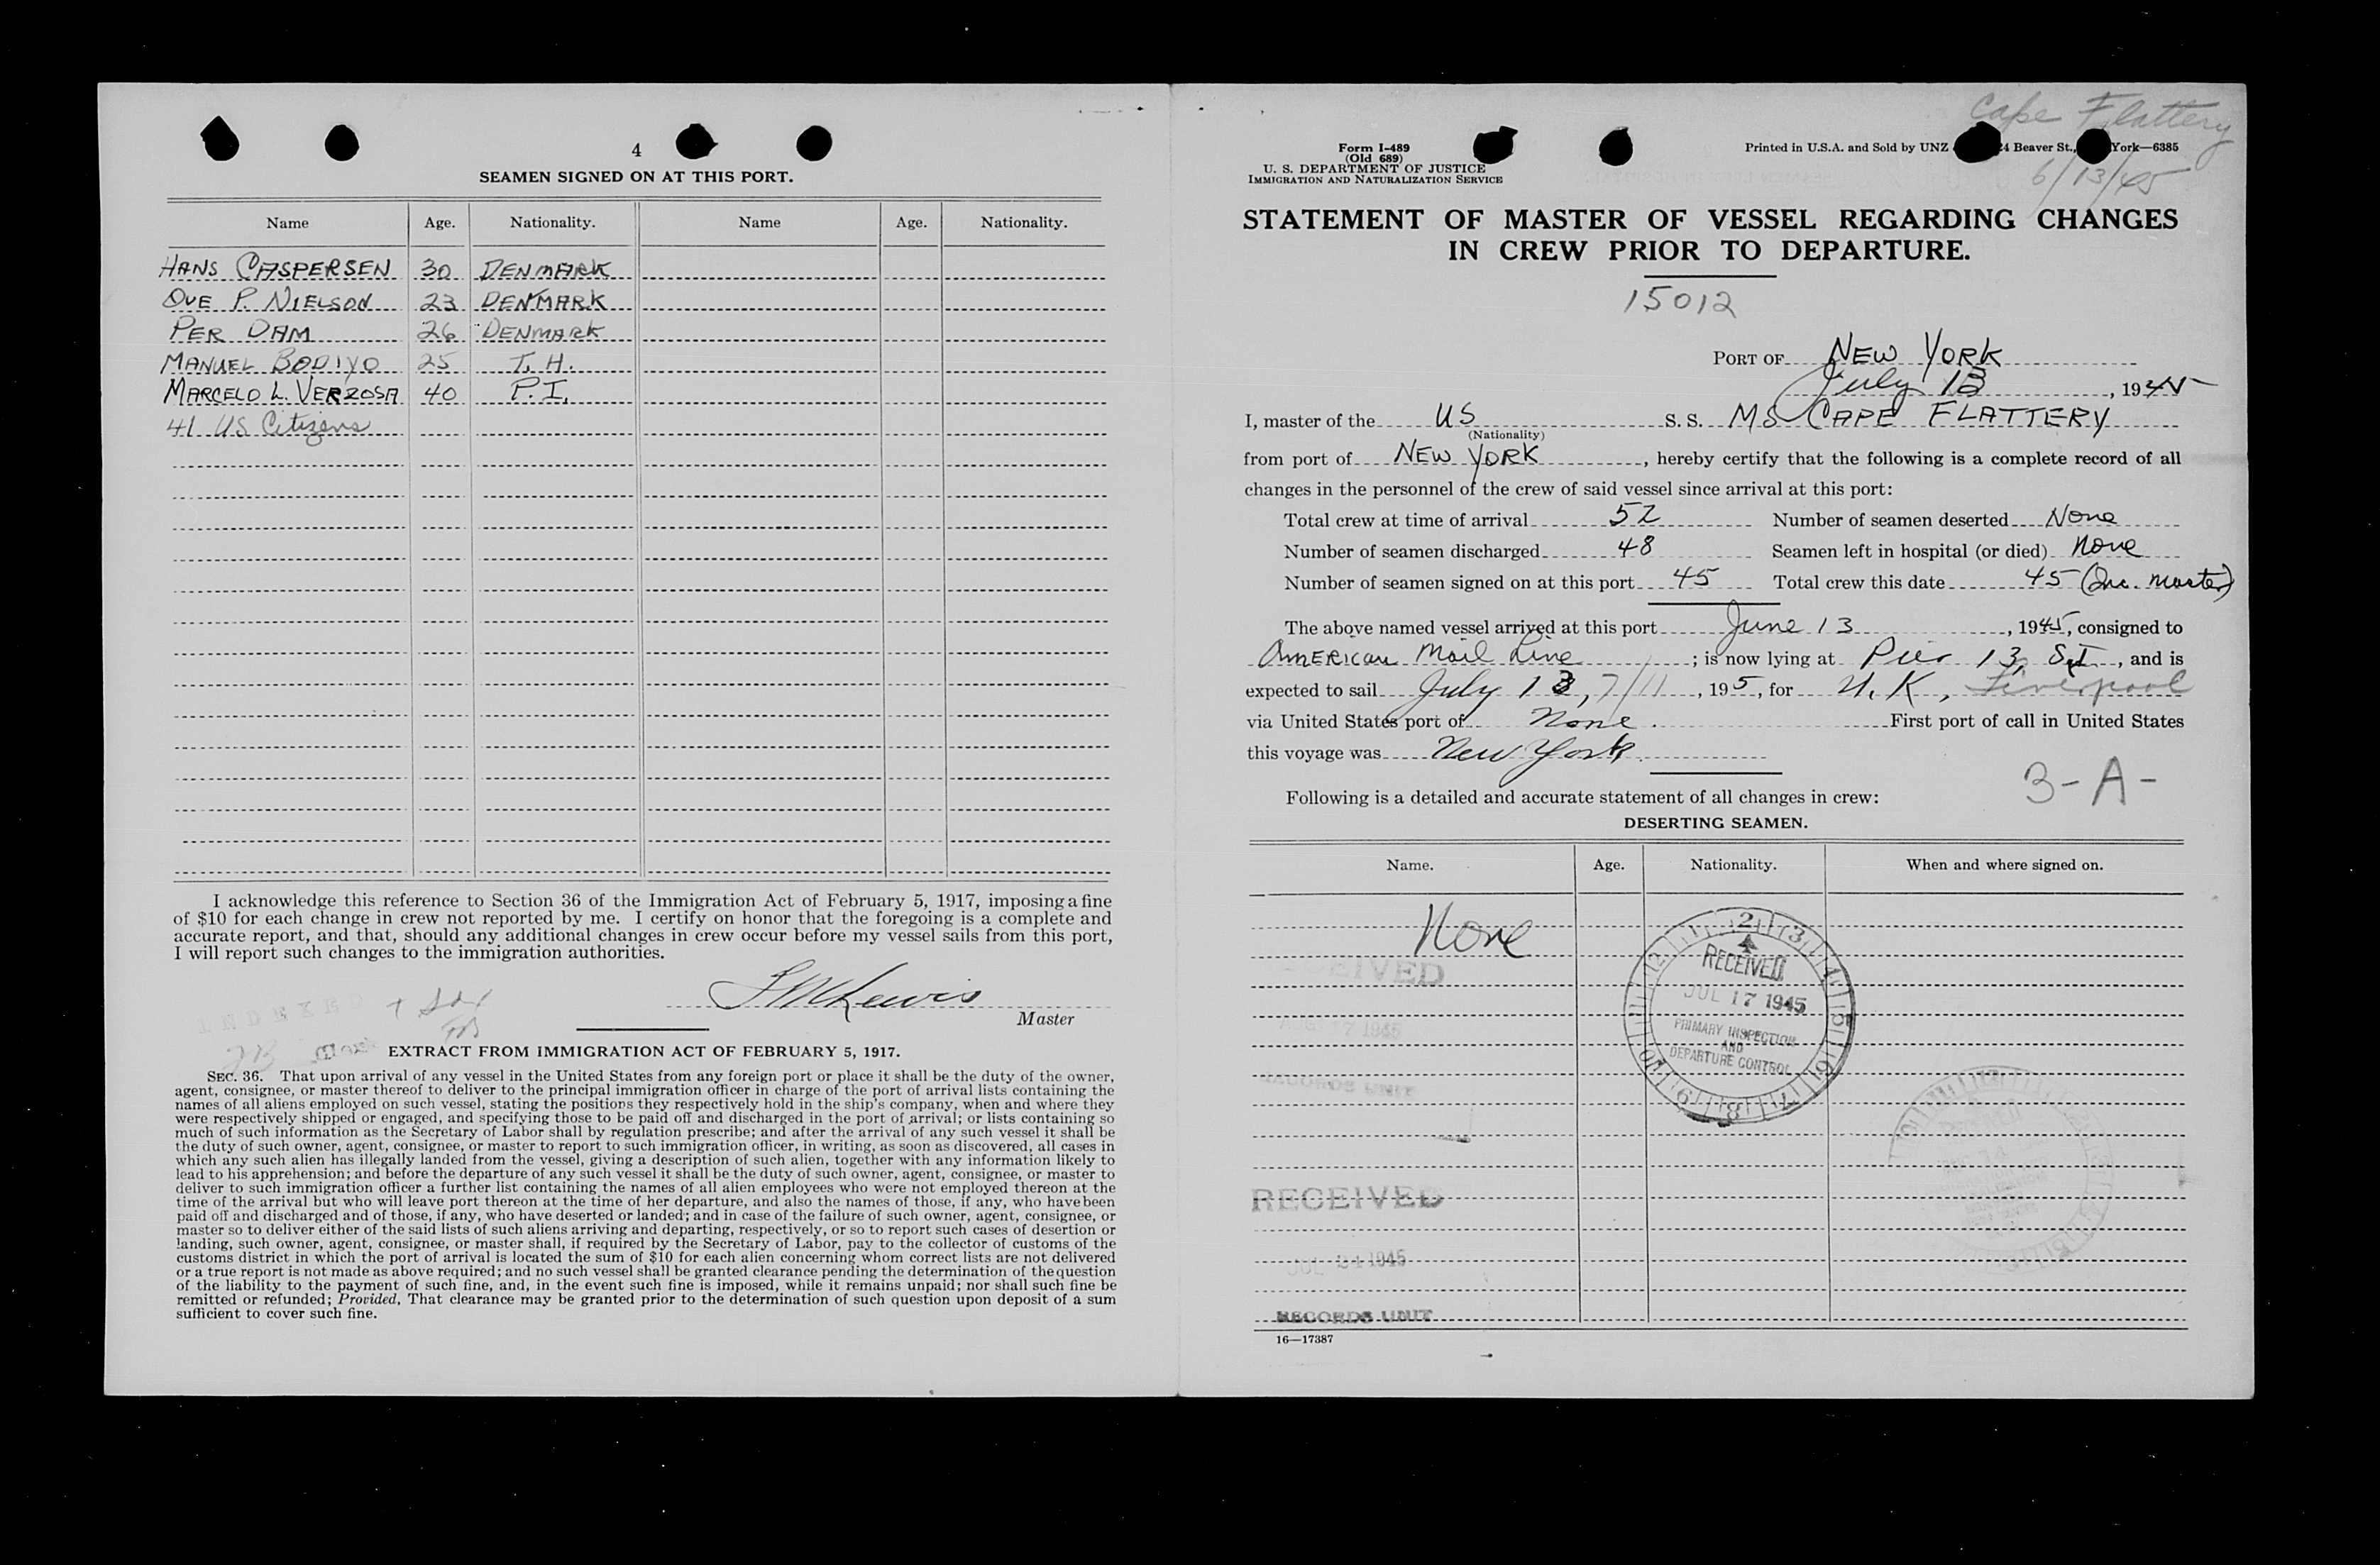 4
SEAMEN SIGNED ON AT THIS PORT.
Name Age. Nationality. Name Age. Nationality.
HANS CASPERSEN 30 DENMARK
OVE P. NIELSON 23 DENMARK
PER DAM 26 DENMARK
MANUEL BODIYO 25 T. H.
MARCELO L. VERZOSA 40 P.I.
41 US Citizens
I acknowledge this reference to Section 36 of the Immigration Act of February 5, 1917, imposing a fine
of $10 for each change in crew not reported by me. I certify on honor that the foregoing is a complete and
accurate report, and that, should any additional changes in crew occur before my vessel sails from this port,
I will report such changes to the immigration authorities.
Lewis
Master
INDEXED
EXTRACT FROM IMMIGRATION ACT OF FEBRUARY 5, 1917.
SEC. 36. That upon arrival of any vessel in the United States from any foreign port or place it shall be the duty of the owner,
agent, consignee, or master thereof to deliver to the principal immigration officer in charge of the port of arrival lists containing the
names of all aliens employed on such vessel, stating the positions they respectively hold in the ship's company, when and where they
were respectively shipped or engaged, and specifying those to be paid off and discharged in the port of arrival; or lists containing so
much of such information as the Secretary of Labor shall by regulation prescribe; and after the arrival of any such vessel it shall be
the duty of such owner, agent, consignee, or master to report to such immigration officer, in writing, as soon as discovered, all cases in
which any such alien has illegally landed from the vessel, giving a description of such alien, together with any information likely to
lead to his apprehension; and before the departure of any such vessel it shall be the duty of such owner, agent, consignee, or master to
deliver to such immigration officer a further list containing the names of all alien employees who were not employed thereon at the
time of the arrival but who will leave port thereon at the time of her departure, and also the names of those, if any, who have been
paid off and discharged and of those, if any, who have deserted or landed; and in case of the failure of such owner, agent, consignee, or
master so to deliver either of the said lists of such aliens arriving and departing, respectively, or so to report such cases of desertion or
landing, such owner, agent, consignee, or master shall, if required by the Secretary of Labor, pay to the collector of customs of the
customs district in which the port of arrival is located the sum of $10 for each alien concerning whom correct lists are not delivered
or a true report is not made as above required; and no such vessel shall be granted clearance pending the determination of the question
of the liability to the payment of such fine, and, in the event such fine is imposed, while it remains unpaid; nor shall such fine be
remitted or refunded; Provided, That clearance may be granted prior to the determination of such question upon deposit of a sum
sufficient to cover such fine.
Cape Flattery
6/13/45
Form I-489
(Old 689)
U. S. DEPARTMENT OF JUSTICE
IMMIGRATION AND NATURALIZATION SERVICE
Printed in U.S.A. and Sold by UNZ 4 Beaver St., York—6385
STATEMENT OF MASTER OF VESSEL REGARDING CHANGES
IN CREW PRIOR TO DEPARTURE.
15012
PORT OF NEW YORK
July 13, 1945
I, master of the US S. S. MS CAPE FLATTERY
(Nationality)
from port of NEW YORK, hereby certify that the following is a complete record of all
changes in the personnel of the crew of said vessel since arrival at this port:
Total crew at time of arrival 52 Number of seamen deserted None
Number of seamen discharged 48 Seamen left in hospital (or died) None
Number of seamen signed on at this port 45 Total crew this date 45 (Inc. Master)
The above named vessel arrived at this port June 13, 1945, consigned to
AMERICAN Mail Line; is now lying at Pier 13, S.I., and is
expected to sail July 13, 7/11, 195, for U.K., Liverpool
via United States port of None. First port of call in United States
this voyage was New York.
3-A-
Following is a detailed and accurate statement of all changes in crew:
DESERTING SEAMEN.
Name. Age. Nationality. When and where signed on.
None
RECEIVED
JUL 17 1945
PRIMARY INSPECTION
AND
DEPARTURE CONTROL
RECEIVED
17 1945
RECORDS UNIT
RECEIVED
JUL 1945
RECORDS UNIT
16—17387